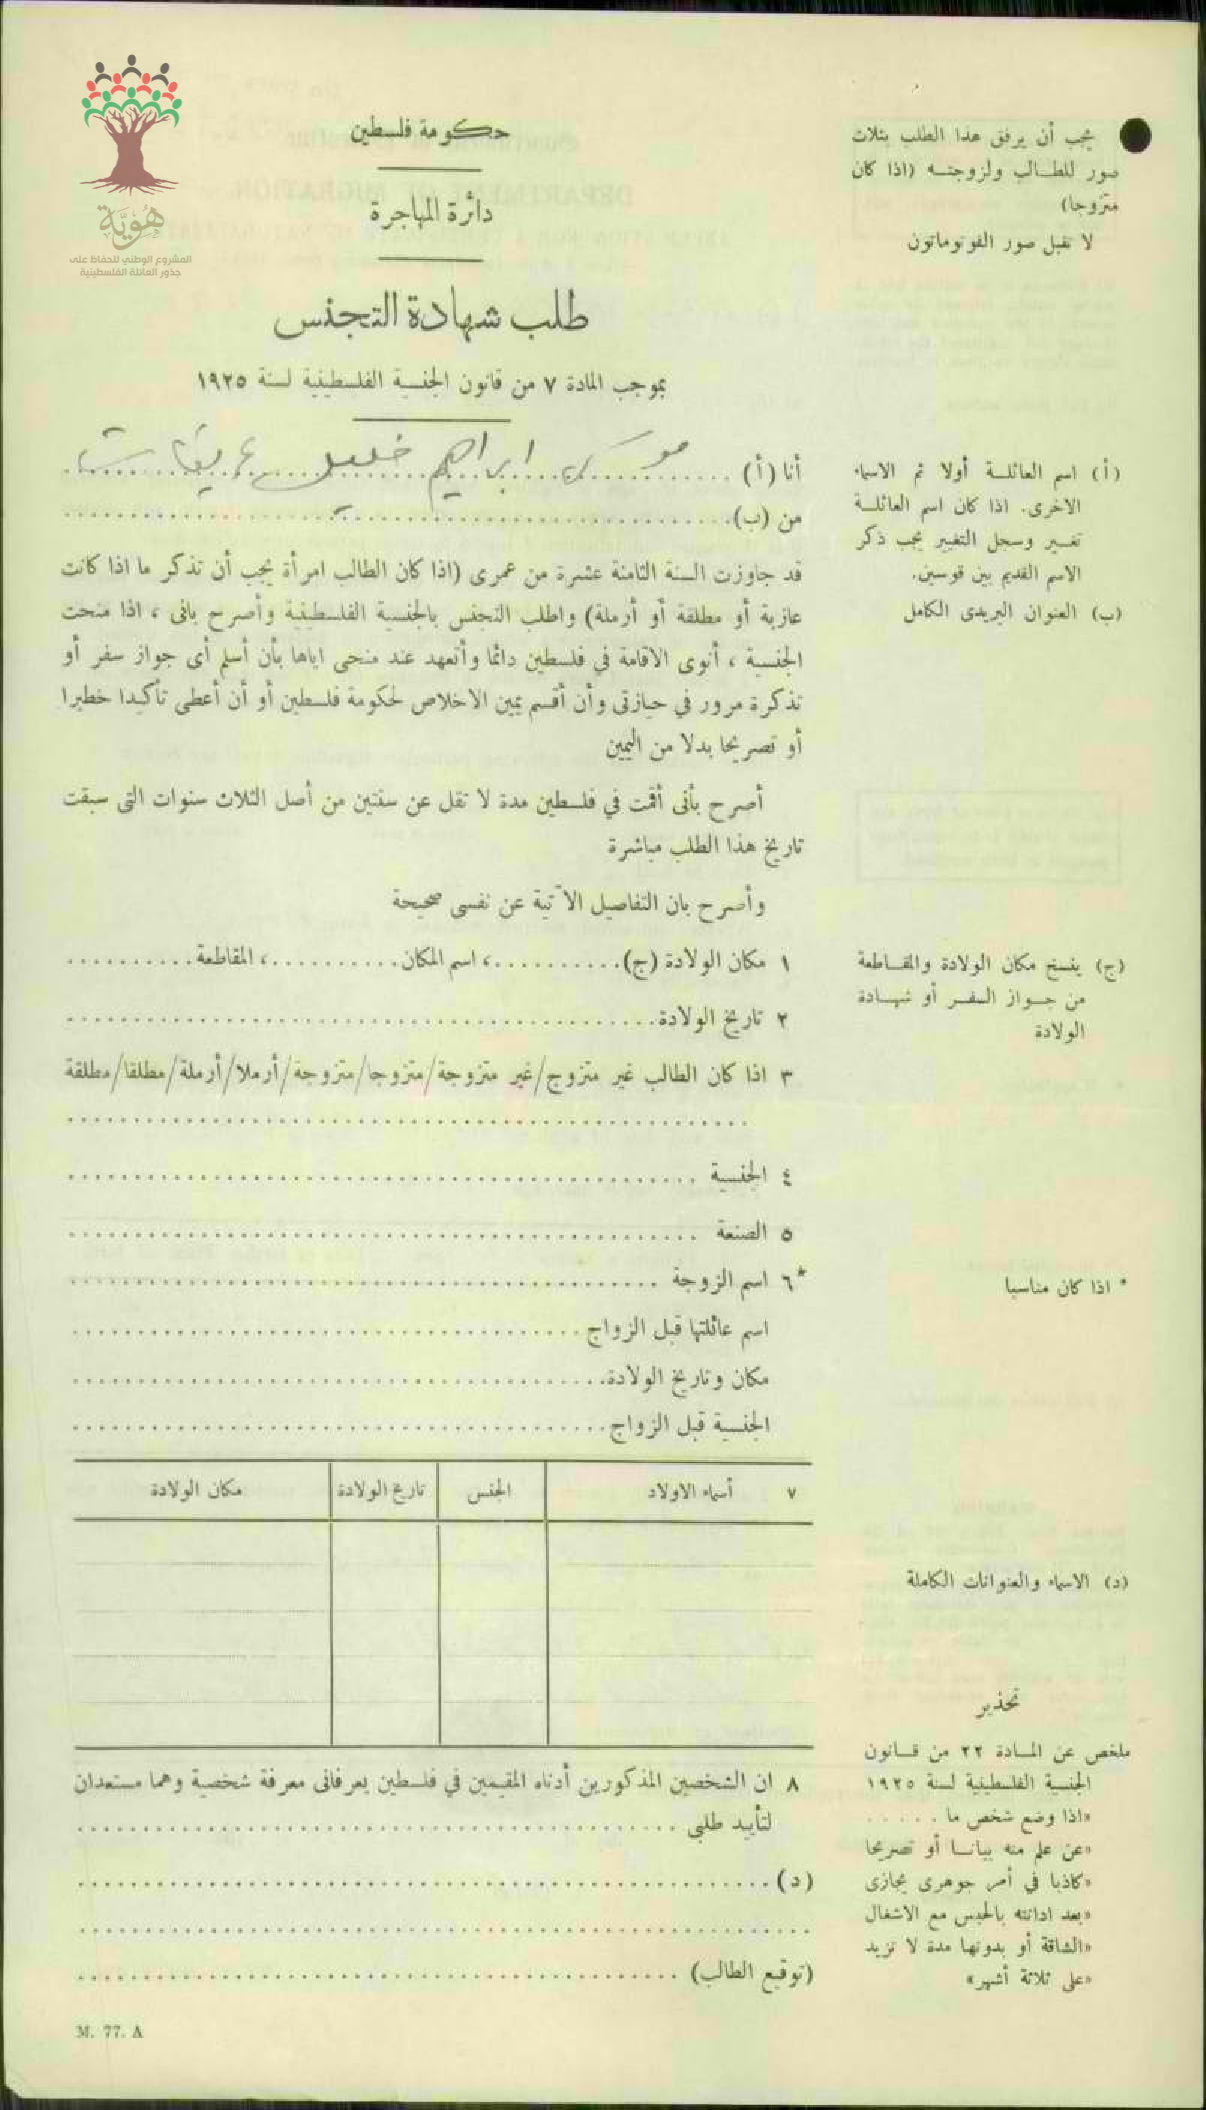 هُوِيَّة
المشروع الوطني للحفاظ على
جذور العائلة الفلسطينية
حكومة فلسطين
دائرة المهاجرة
طلب شهادة التجنس
بموجب المادة ٧ من قانون الجنسية الفلسطينية لسنة ١٩٢٥
يجب أن يرفق هذا الطلب بثلاث
صور للطالب ولزوجته (اذا كان
متزوجا)
لا تقبل صور الفوتوماتون
أنا (أ) موسى ابراهيم خليل عريقات
من (ب)
قد جاوزت السنة الثامنة عشرة من عمرى (اذا كان الطالب امرأة يجب أن تذكر ما اذا كانت
عازبة أو مطلقة أو أرملة) واطلب التجنس بالجنسية الفلسطينية وأصرح بانى ، اذا منحت
الجنسية ، أنوى الاقامة في فلسطين دائما وأتعهد عند منحى اياها بأن أسلم أى جواز سفر أو
تذكرة مرور في حيازتى وأن أقسم يمين الاخلاص لحكومة فلسطين أو أن أعطى تأكيدا خطيرا
أو تصريحا بدلا من اليمين
أصرح بأنى أقمت في فلسطين مدة لا تقل عن سنتين من أصل الثلاث سنوات التى سبقت
تاريخ هذا الطلب مباشرة
وأصرح بان التفاصيل الآتية عن نفسى صحيحة
١ مكان الولادة (ج)..........، اسم المكان..........، المقاطعة..........
٢ تاريخ الولادة
٣ اذا كان الطالب غير متزوج/غير متزوجة/متزوجا/متزوجة/أرملا/أرملة/مطلقا/مطلقة
٤ الجنسية
٥ الصنعة
*٦ اسم الزوجة
اسم عائلتها قبل الزواج
مكان وتاريخ الولادة
الجنسية قبل الزواج
٧ أسماء الاولاد الجنس تاريخ الولادة مكان الولادة
٨ ان الشخصين المذكورين أدناه المقيمين في فلسطين يعرفانى معرفة شخصية وهما مستعدان
لتأييد طلبى
(د)
(توقيع الطالب)
(أ) اسم العائلة أولا ثم الاسماء
الاخرى. اذا كان اسم العائلة
تغير وسجل التغيير يجب ذكر
الاسم القديم بين قوسين.
(ب) العنوان البريدى الكامل
(ج) ينسخ مكان الولادة والمقاطعة
من جواز السفر أو شهادة
الولادة
* اذا كان مناسبا
(د) الاسماء والعنوانات الكاملة
تحذير
ملخص عن المادة ٢٢ من قانون
الجنسية الفلسطينية لسنة ١٩٢٥
«اذا وضع شخص ما . . . . .
«عن علم منه بيانا أو تصريحا
«كاذبا في أمر جوهرى يجازى
«بعد ادانته بالحبس مع الاشغال
«الشاقة أو بدونها مدة لا تزيد
«على ثلاثة أشهر»
M. 77. A